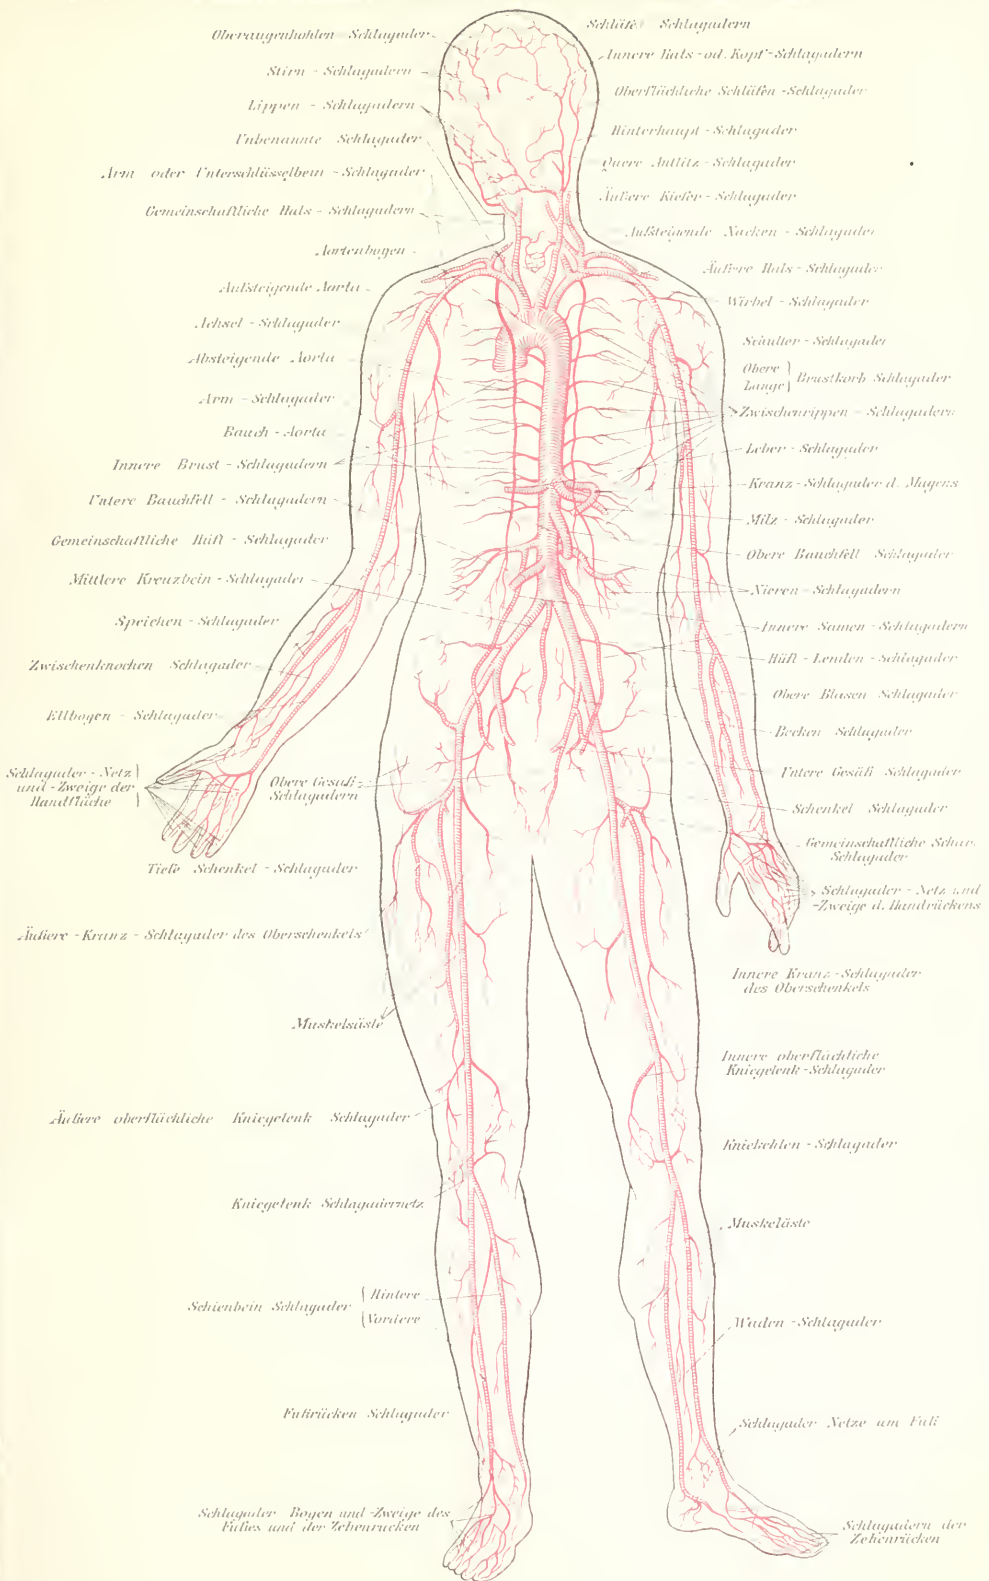 Oberaugenhöhlen Schlagader
Stirn - Schlagadern
Lippen - Schlagadern
Unbenannte Schlagader
Arm oder Unterschlüsselbein - Schlagader
Gemeinschaftliche Hals - Schlagadern
Aortenbogen
Aufsteigende Aorta
Achsel - Schlagader
Absteigende Aorta
Arm - Schlagader
Bauch - Aorta
Innere Brust - Schlagadern
Untere Bauchfell - Schlagadern
Gemeinschaftliche Hüft - Schlagader
Mittlere Kreuzbein - Schlagader
Speichen - Schlagader
Zwischenknochen Schlagader
Ellbogen - Schlagader
Schlagader - Netz
und - Zweige der
Handfläche
Obere Gesäß
Schlagadern
Tiefe Schenkel - Schlagader
Äußere - Kranz - Schlagader des Oberschenkels
Muskelsäste
Äußere oberflächliche Kniegelenk Schlagader
Kniegelenk Schlagadernetz
Schienbein Schlagader
Hintere
Vordere
Fußrücken Schlagader
Schlagader Bogen und - Zweige des
Fußes und der Zehenrücken
Schläfen Schlagadern
Innere Hals - od. Kopf - Schlagadern
Oberflächliche Schläfen - Schlagader
Hinterhaupt - Schlagader
Quere Antlitz - Schlagader
Äußere Kiefer - Schlagader
Aufsteigende Nacken - Schlagader
Äußere Hals - Schlagader
Wirbel - Schlagader
Schulter - Schlagader
Obere
Lange
Brustkorb Schlagader
Zwischenrippen - Schlagadern
Leber - Schlagader
Kranz - Schlagader d. Magens
Milz - Schlagader
Obere Bauchfell Schlagader
Nieren - Schlagadern
Innere Samen - Schlagadern
Hüft - Lenden - Schlagader
Obere Blasen Schlagader
Becken Schlagader
Untere Gesäß Schlagader
Schenkel Schlagader
Gemeinschaftliche Scham
Schlagader
Schlagader - Netz und
- Zweige d. Handrückens
Innere Kranz - Schlagader
des Oberschenkels
Innere oberflächliche
Kniegelenk - Schlagader
Kniekehlen - Schlagader
Muskeläste
Waden - Schlagader
Schlagader Netze am Fuß
Schlagadern der
Zehenrücken